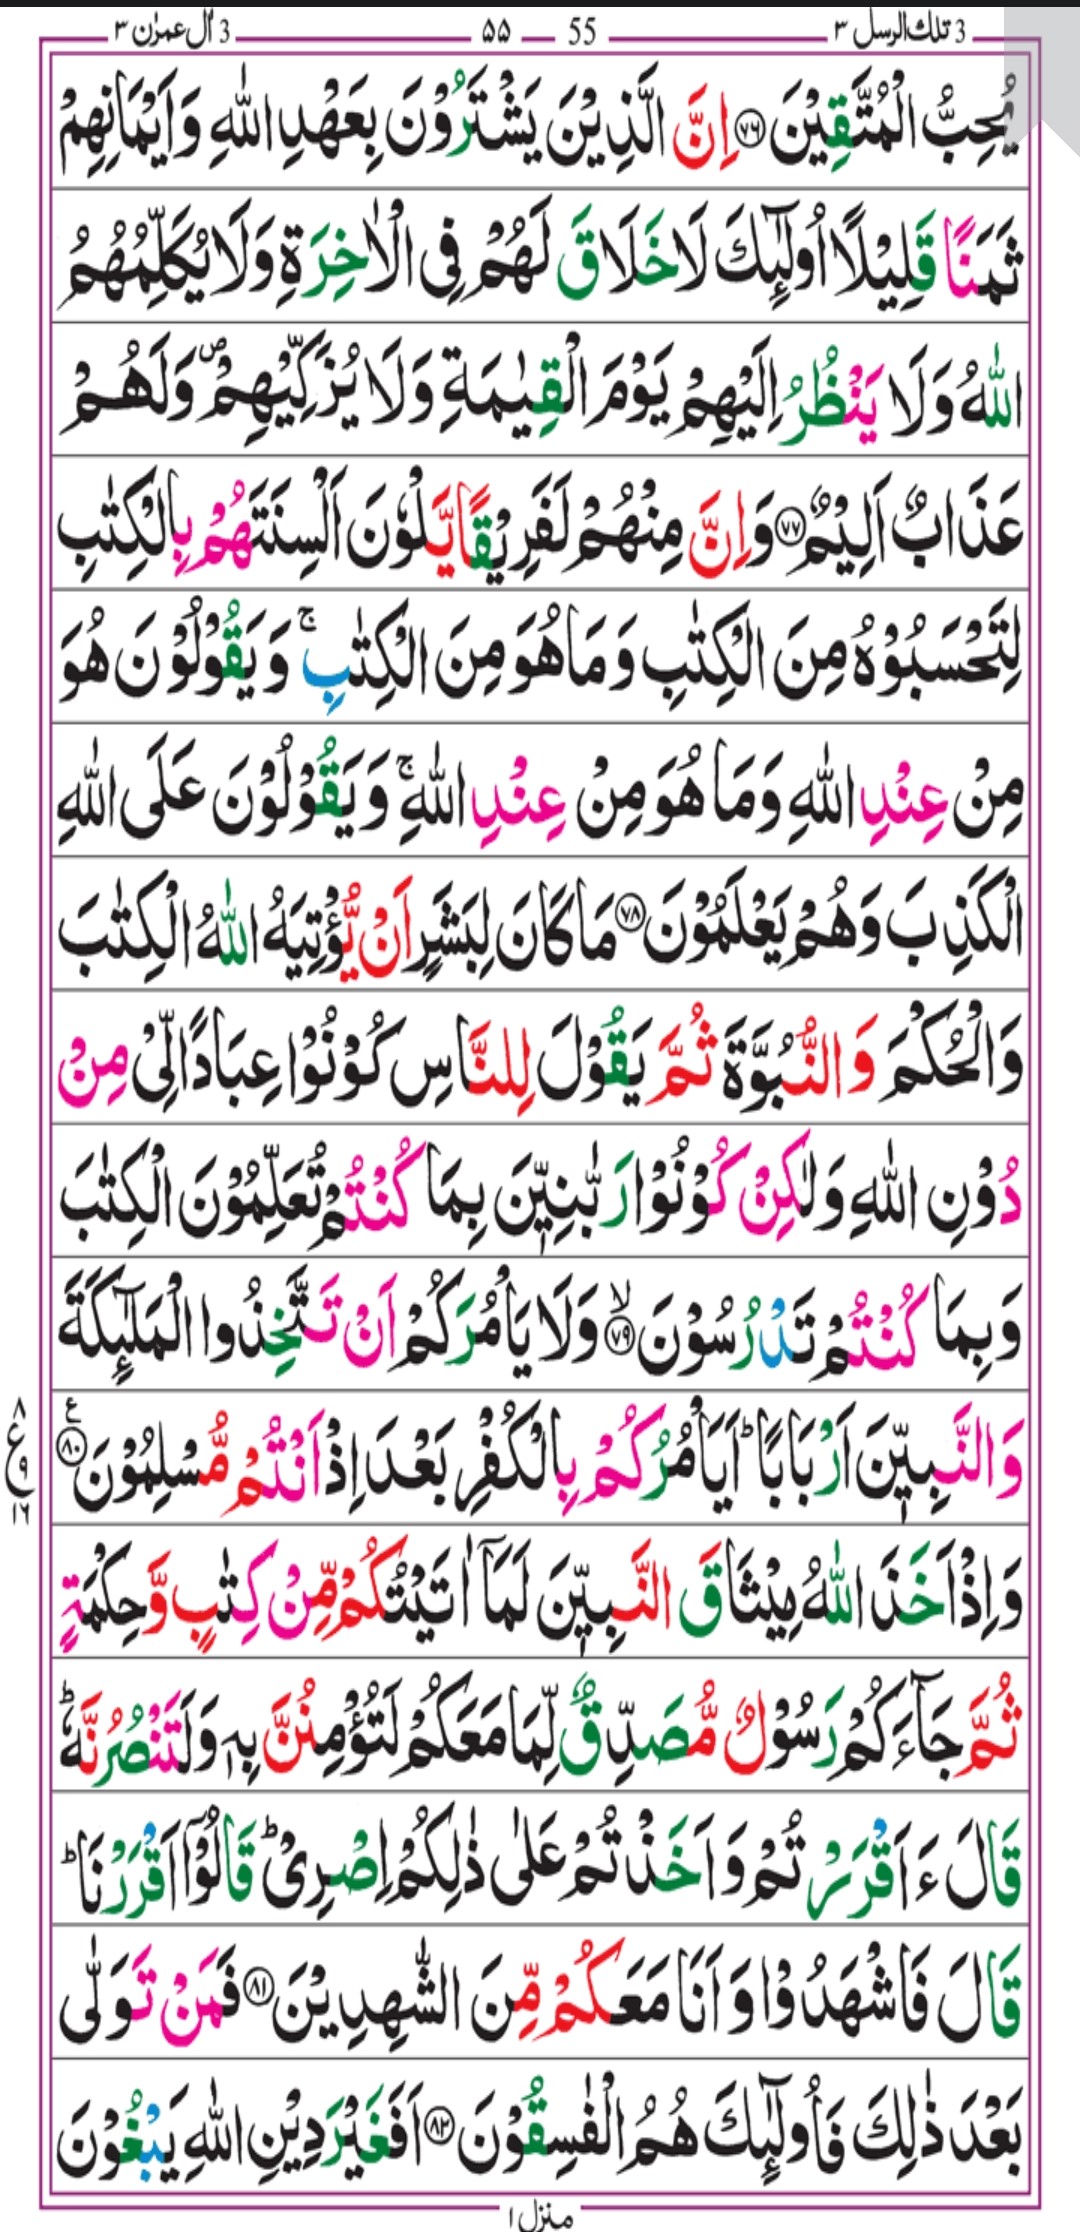 3 تلك الرسل ٣ 55 ۵۵ 3 اٰل عمرٰن ٣
يُحِبُّ الْمُتَّقِيْنَ ﴿۷۶﴾ اِنَّ الَّذِيْنَ يَشْتَرُوْنَ بِعَهْدِ اللّٰهِ وَاَيْمَانِهِمْ
ثَمَنًا قَلِيْلًا اُولٰٓئِكَ لَا خَلَاقَ لَهُمْ فِى الْاٰخِرَةِ وَلَا يُكَلِّمُهُمُ
اللّٰهُ وَلَا يَنْظُرُ اِلَيْهِمْ يَوْمَ الْقِيٰمَةِ وَلَا يُزَكِّيْهِمْ ۖ وَلَهُمْ
عَذَابٌ اَلِيْمٌ ﴿۷۷﴾ وَاِنَّ مِنْهُمْ لَفَرِيْقًا يَّلْوٗنَ اَلْسِنَتَهُمْ بِالْكِتٰبِ
لِتَحْسَبُوْهُ مِنَ الْكِتٰبِ وَمَا هُوَ مِنَ الْكِتٰبِ ۚ وَيَقُوْلُوْنَ هُوَ
مِنْ عِنْدِ اللّٰهِ وَمَا هُوَ مِنْ عِنْدِ اللّٰهِ ۚ وَيَقُوْلُوْنَ عَلَى اللّٰهِ
الْكَذِبَ وَهُمْ يَعْلَمُوْنَ ﴿۷۸﴾ مَا كَانَ لِبَشَرٍ اَنْ يُّؤْتِيَهُ اللّٰهُ الْكِتٰبَ
وَالْحُكْمَ وَالنُّبُوَّةَ ثُمَّ يَقُوْلَ لِلنَّاسِ كُوْنُوْا عِبَادًا لِّىْ مِنْ
دُوْنِ اللّٰهِ وَلٰكِنْ كُوْنُوْا رَبّٰنِيّٖنَ بِمَا كُنْتُمْ تُعَلِّمُوْنَ الْكِتٰبَ
وَبِمَا كُنْتُمْ تَدْرُسُوْنَ ۙ﴿۷۹﴾ وَلَا يَاْمُرَكُمْ اَنْ تَتَّخِذُوا الْمَلٰٓئِكَةَ
وَالنَّبِيّٖنَ اَرْبَابًا ؕ اَيَاْمُرُكُمْ بِالْكُفْرِ بَعْدَ اِذْ اَنْتُمْ مُّسْلِمُوْنَ ﴿۸۰﴾ ع
۸ ع ۹ ۱۶
وَاِذْ اَخَذَ اللّٰهُ مِيْثَاقَ النَّبِيّٖنَ لَمَآ اٰتَيْتُكُمْ مِّنْ كِتٰبٍ وَّحِكْمَةٍ
ثُمَّ جَآءَكُمْ رَسُوْلٌ مُّصَدِّقٌ لِّمَا مَعَكُمْ لَتُؤْمِنُنَّ بِهٖ وَلَتَنْصُرُنَّهٗ ؕ
قَالَ ءَاَقْرَرْتُمْ وَاَخَذْتُمْ عَلٰى ذٰلِكُمْ اِصْرِىْ ؕ قَالُوْٓا اَقْرَرْنَا ؕ
قَالَ فَاشْهَدُوْا وَاَنَا مَعَكُمْ مِّنَ الشّٰهِدِيْنَ ﴿۸۱﴾ فَمَنْ تَوَلّٰى
بَعْدَ ذٰلِكَ فَاُولٰٓئِكَ هُمُ الْفٰسِقُوْنَ ﴿۸۲﴾ اَفَغَيْرَ دِيْنِ اللّٰهِ يَبْغُوْنَ
منزل ۱